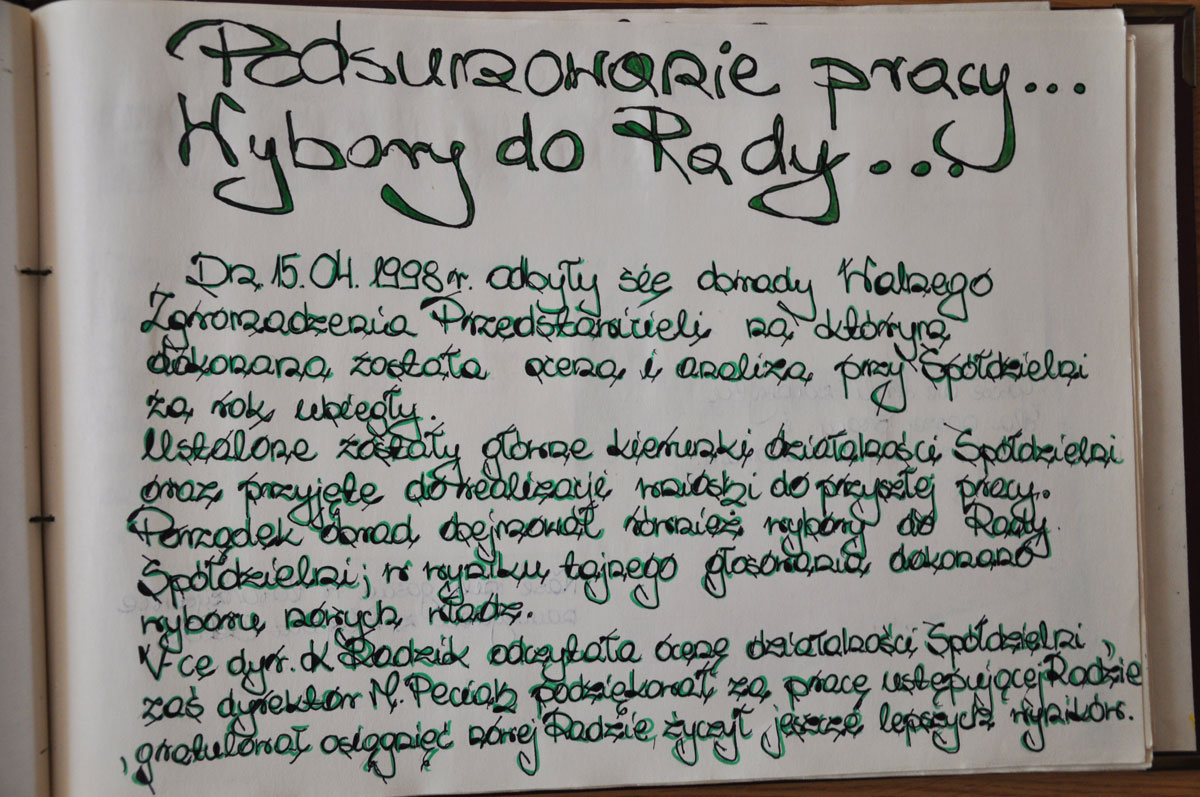 Podsumowanie pracy...
Wybory do Rady...
Dn. 15.04.1998r. odbyły się obrady Walnego
Zgromadzenia Przedstawicieli, na którym
dokonana została ocena i analiza przy Spółdzielni
za rok ubiegły.
Ustalone zostały główne kierunki działalności Spółdzielni
oraz przyjęte do realizacji wnioski do przyszłej pracy.
Porządek obrad obejmował również wybory do Rady
Spółdzielni; w wyniku tajnego głosowania dokonano
wyboru nowych władz.
V-ce dyr. K Radzik odczytała ocenę działalności Spółdzielni,
zaś dyrektor M. Peciak podziękował za pracę ustępującej Radzie
, gratulował osiągnięć nowej Radzie, życzył jeszcze lepszych wyników.